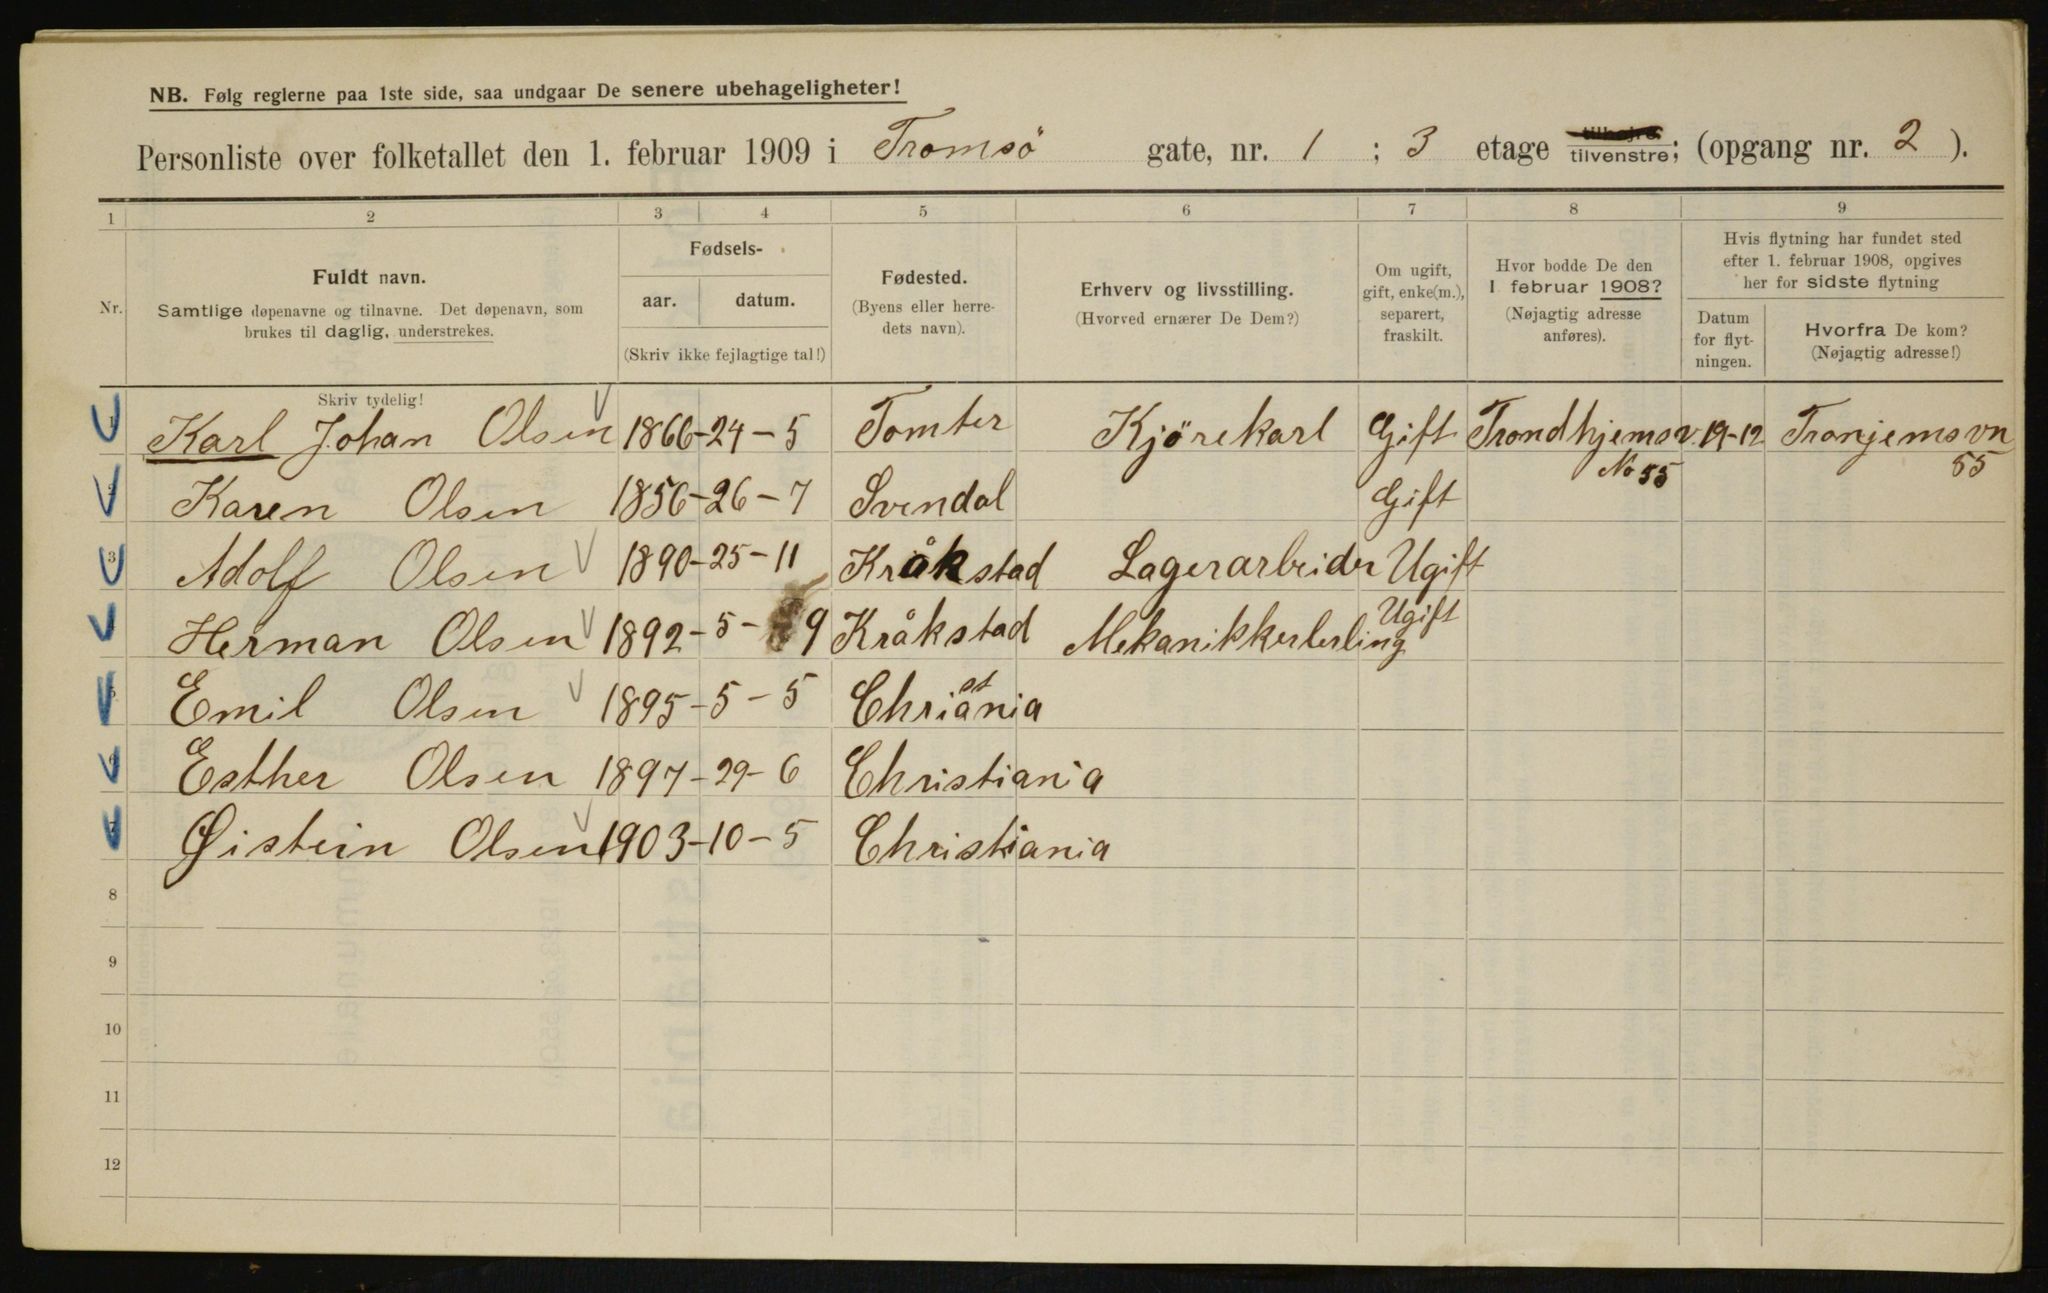 NB. Følg reglerne paa 1ste side, saa undgaar De senere ubehageligheter!
Personliste over folketallet den 1. februar 1909 i Tromsö gate, nr. 1 ; 3 etage tilhøjre tilvenstre; (opgang nr. 2 ).
1 2 3 4 5 6 7 8 9
Nr.
Fuldt navn.
Samtlige døpenavne og tilnavne. Det døpenavn, som
brukes til daglig, understrekes.
Fødsels-
aar. datum.
(Skriv ikke fejlagtige tal!)
Fødested.
(Byens eller herre-
dets navn).
Erhverv og livsstilling.
(Hvorved ernærer De Dem?)
Om ugift,
gift, enke(m.),
separert,
fraskilt.
Hvor bodde De den
1 februar 1908?
(Nøjagtig adresse
anføres).
Hvis flytning har fundet sted
efter 1. februar 1908, opgives
her for sidste flytning
Datum
for flyt-
ningen.
Hvorfra De kom?
(Nøjagtig adresse!)
Skriv tydelig!
1 Karl Johan Olsen 1866-24-5 Tomter Kjörekarl Gift Trondhjemsv. 19-12 Tronjemsvn
No 55 55
2 Karen Olsen 1856-26-7 Svendal Gift
3 Adolf Olsen 1890-25-11 Kråkstad Lagerarbeider Ugift
Herman Olsen 1892-5-9 Kråkstad Mekanikkerlerling Ugift
5 Emil Olsen 1895-5-5 Christiania
6 Esther Olsen 1897-29-6 Christiania
7 Øistein Olsen 1903-10-5 Christiania
8
9
10
11
12